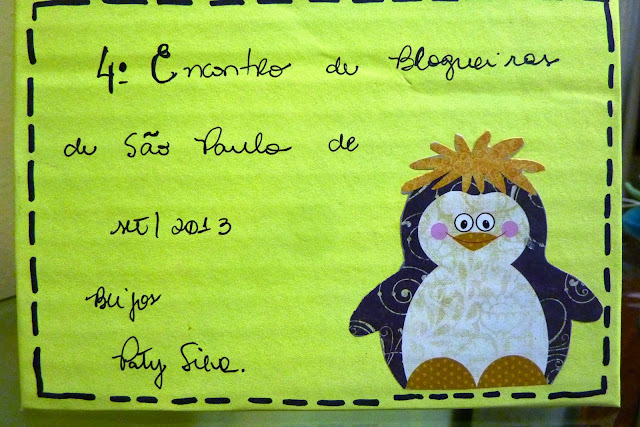 4º Encontro de Blogueiras
de São Paulo de
set/2013
Beijos
Paty Silva.